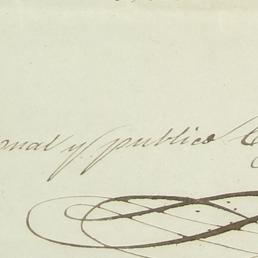 onal y publico